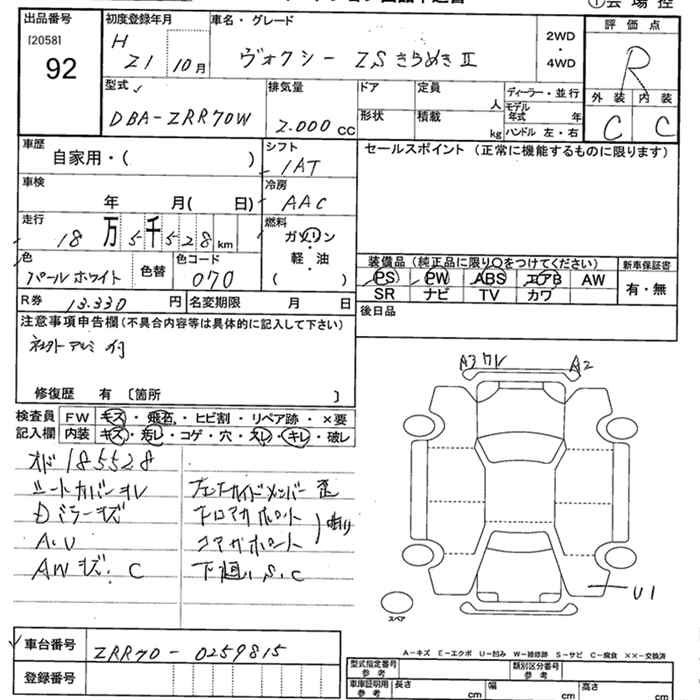 ① 会場控
出品番号
[2058]
92
初度登録年月
H 21 10月
車名・グレード
ヴォクシー ZSきらめきⅡ
2WD
・
4WD
評価点
R
外装 内装
C C
型式
DBA-ZRR70W
排気量
2.000 CC
ドア
形状
定員
人
積載
kg
ディーラー・並行
モデル年式 年
ハンドル 左・右
車歴
自家用・( )
シフト
IAT
セールスポイント (正常に機能するものに限ります)
車検
年 月( 日)
冷房
AAC
走行
18万5千528km
燃料
ガソリン
・
軽・油
( )
色
パールホワイト
色替
色コード
070
装備品 (純正品に限り○をつけてください)
PS PW ABS エアB AW
SR ナビ TV カワ
新車保証書
有・無
R券 13.330 円
名変期限 月 日
後日品
注意事項申告欄(不具合内容等は具体的に記入して下さい)
修復歴 有 〔箇所 〕
A3 ワレ A2
検査員記入欄
FW キズ・飛石・ヒビ割・リペア跡・×要
内装 キズ・汚レ・コゲ・穴・スレ・キレ・破レ
オド 185528
シートカバースレ
Dミラーキズ
A.U
AWキズ.C
フロントサイドメンバー歪
下回.S.C
U1
スペア
車台番号 ZRR70-0259815
登録番号
A-キズ E-エクボ U-凹み W-補修跡 S-サビ C-腐食 ××-交換済
型式指定番号 参考
類別区分番号 参考
車庫証明用 参考 長さ cm 幅 cm 高さ cm